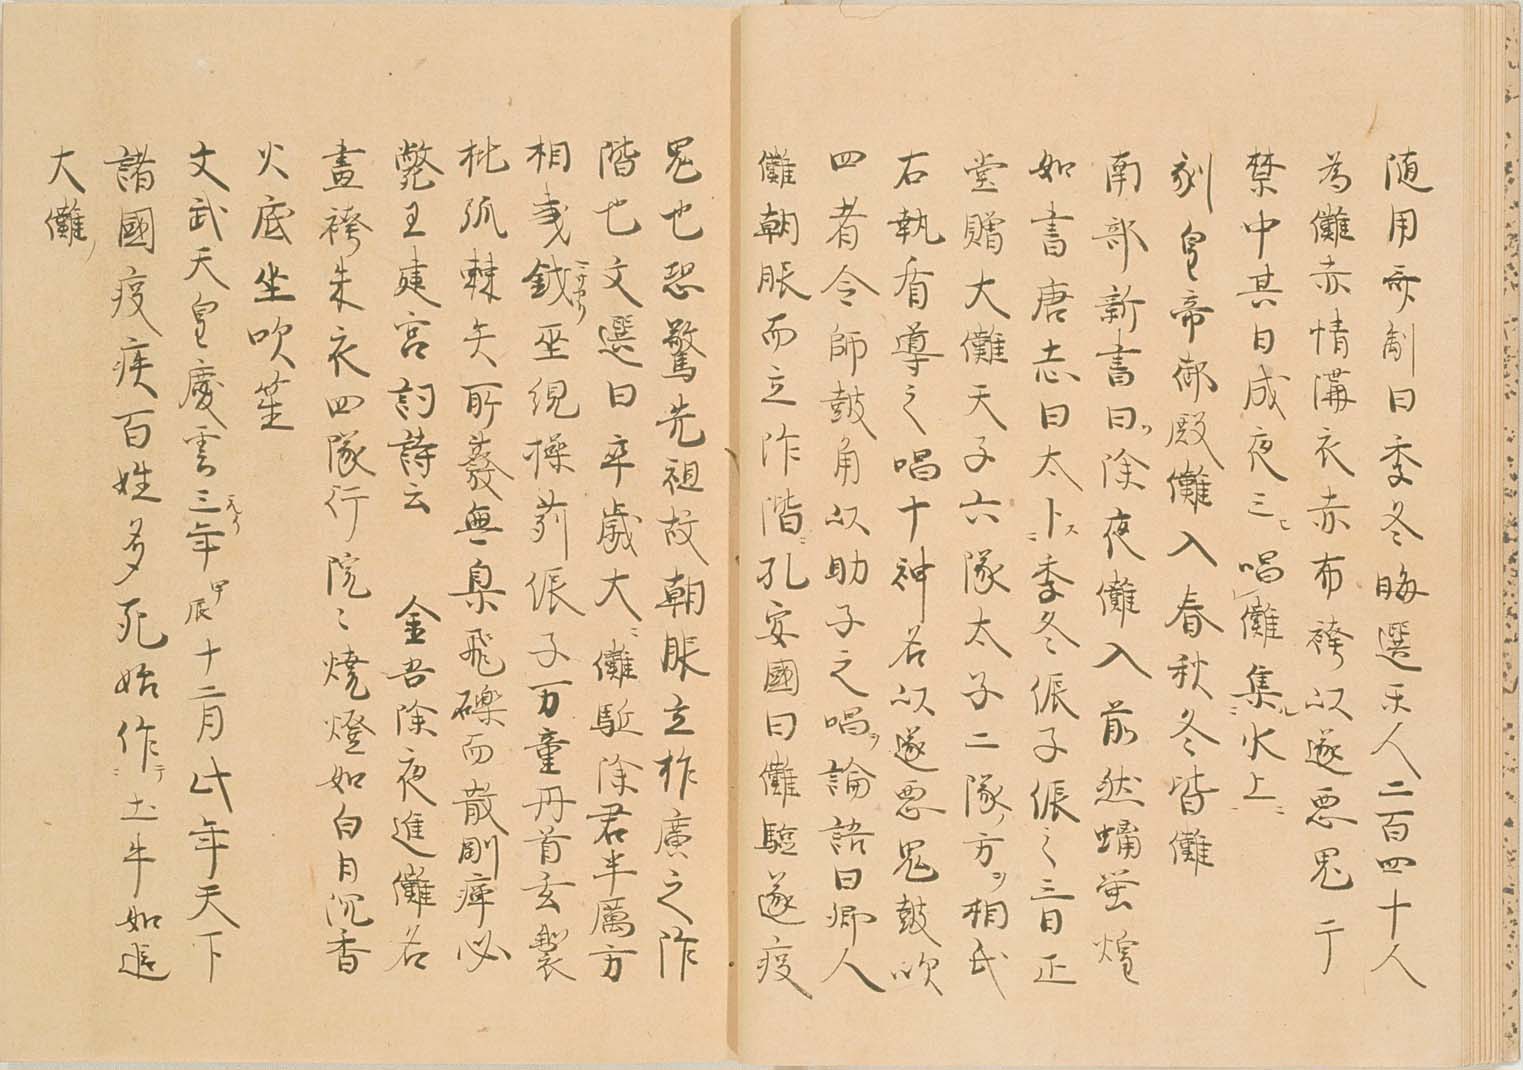 随用舒制曰季冬晦選壬人二百四十人
為儺赤情溝衣赤布袴以逐悪鬼于
禁中其日成夜三ヒ唱儺集ルニ火上ニ
刻皇帝御殿儺入春秋冬皆儺
南部新書曰除夜儺入前然蝋蛍煌
如書唐志曰太卜スニ季冬侲子侲之三日正
堂贈大儺天子六隊太子二隊ノ方ヲ相氏
右執盾導之唱十神名以逐悪鬼鼓吹
四者令師鼓角以助子之唱ヲ論語曰郷人
儺朝服而立阼階ニ孔安國曰儺駈逐疫
鬼也恐驚先祖故朝服立柞廣之阼
階也文選曰卒歳大ニ儺駈除君半厲方
相戔鉞巫覡操茢侲子万童丹首玄製
枇弧棘矢所發無臬飛礫而散剛瘴必
斃王建宮詞詩云 金吾除夜進儺名
畫袴朱衣四隊行院ミ燒燈如白日沉香
火底坐吹笙
文武天皇慶雲三年甲辰十二月此年天下
諸國疫疾百姓多死始作テニ土牛如追
大儺ノ